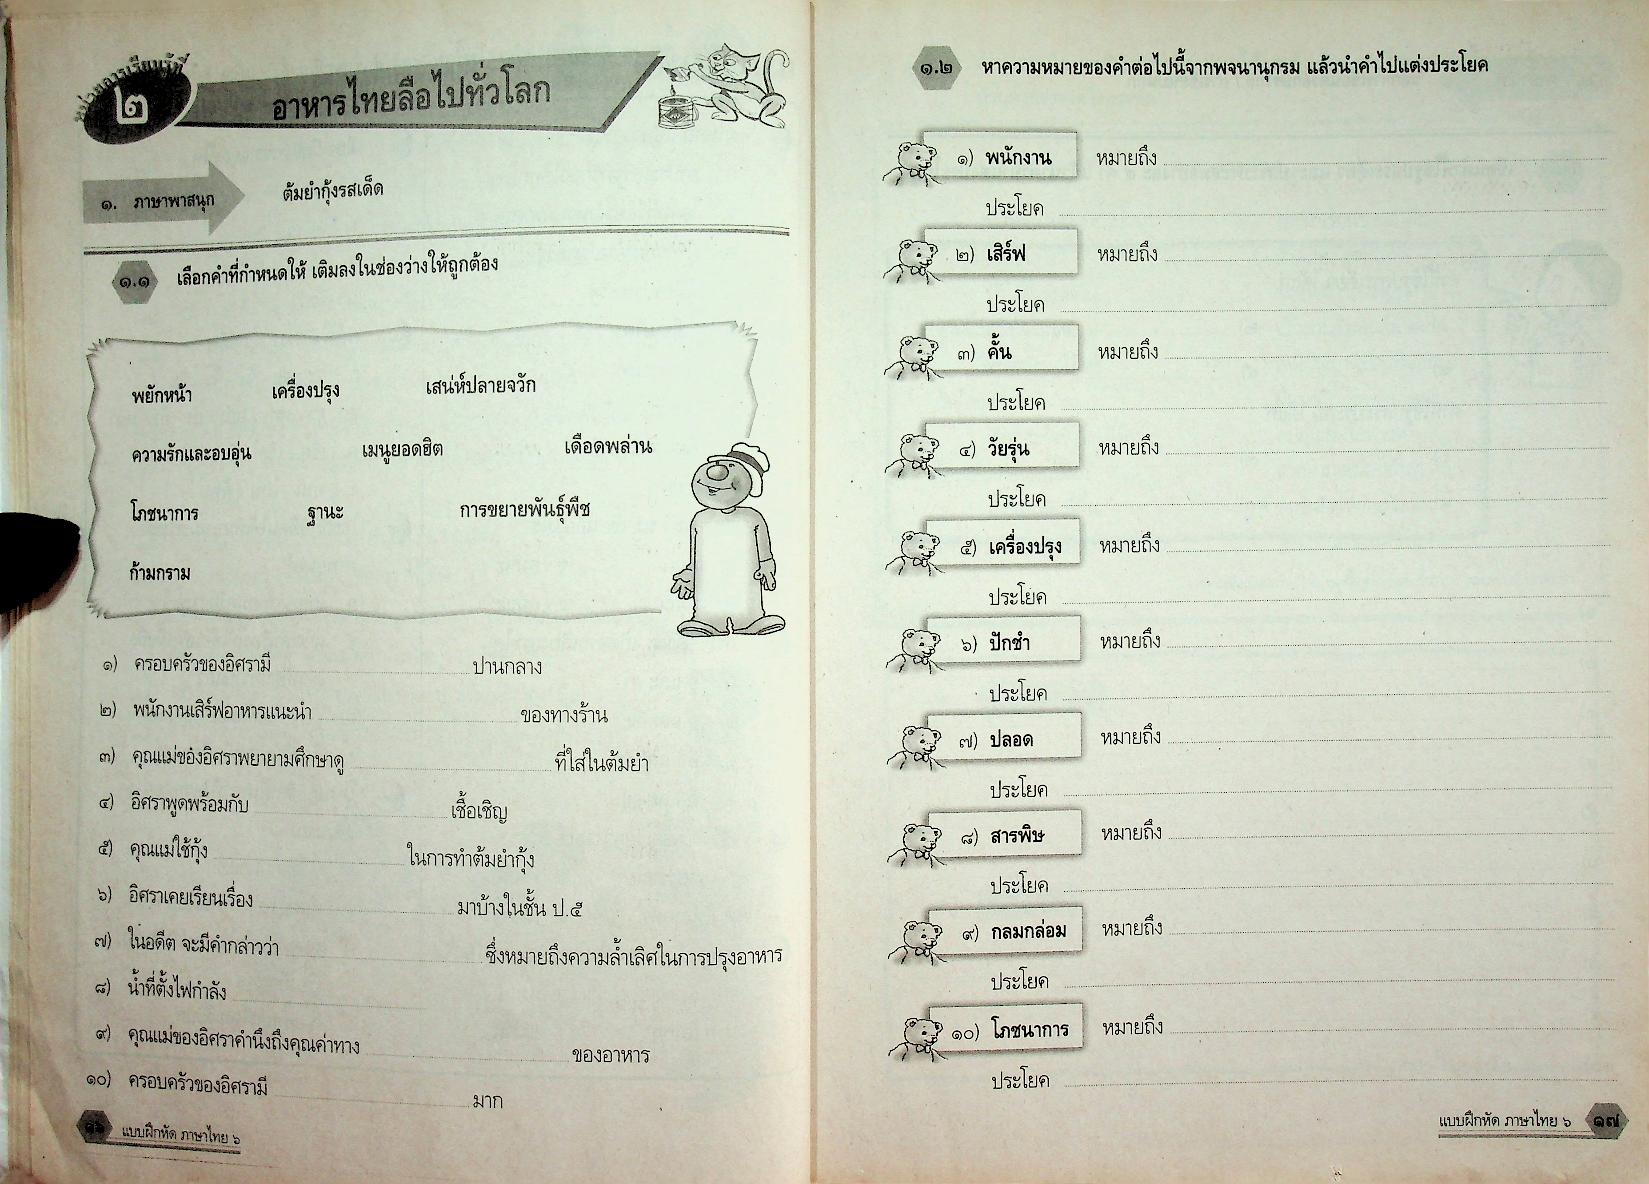 หน่วยการเรียนรู้ที่
๒
อาหารไทยลือไปทั่วโลก
๑. ภาษาพาสนุก
ต้มยำกุ้งรสเด็ด
๑.๑ เลือกคำที่กำหนดให้ เติมลงในช่องว่างให้ถูกต้อง
พยักหน้า เครื่องปรุง เสน่ห์ปลายจวัก
ความรักและอบอุ่น เมนูยอดฮิต เดือดพล่าน
โภชนาการ ฐานะ การขยายพันธุ์พืช
ก้ามกราม
๑) ครอบครัวของอิศรามี ปานกลาง
๒) พนักงานเสิร์ฟอาหารแนะนำ ของทางร้าน
๓) คุณแม่ของอิศราพยายามศึกษาดู ที่ใส่ในต้มยำ
๔) อิศราพูดพร้อมกับ เชื้อเชิญ
๕) คุณแม่ใช้กุ้ง ในการทำต้มยำกุ้ง
๖) อิศราเคยเรียนเรื่อง มาบ้างในชั้น ป.๕
๗) ในอดีต จะมีคำกล่าวว่า ซึ่งหมายถึงความล้ำเลิศในการปรุงอาหาร
๘) น้ำที่ตั้งไฟกำลัง
๙) คุณแม่ของอิศราคำนึงถึงคุณค่าทาง ของอาหาร
๑๐) ครอบครัวของอิศรามี มาก
๑๖ แบบฝึกหัด ภาษาไทย ๖
๑.๒ หาความหมายของคำต่อไปนี้จากพจนานุกรม แล้วนำคำไปแต่งประโยค
๑) พนักงาน หมายถึง
ประโยค
๒) เสิร์ฟ หมายถึง
ประโยค
๓) คั้น หมายถึง
ประโยค
๔) วัยรุ่น หมายถึง
ประโยค
๕) เครื่องปรุง หมายถึง
ประโยค
๖) ปักชำ หมายถึง
ประโยค
๗) ปลอด หมายถึง
ประโยค
๘) สารพิษ หมายถึง
ประโยค
๙) กลมกล่อม หมายถึง
ประโยค
๑๐) โภชนาการ หมายถึง
ประโยค
แบบฝึกหัด ภาษาไทย ๖ ๑๗